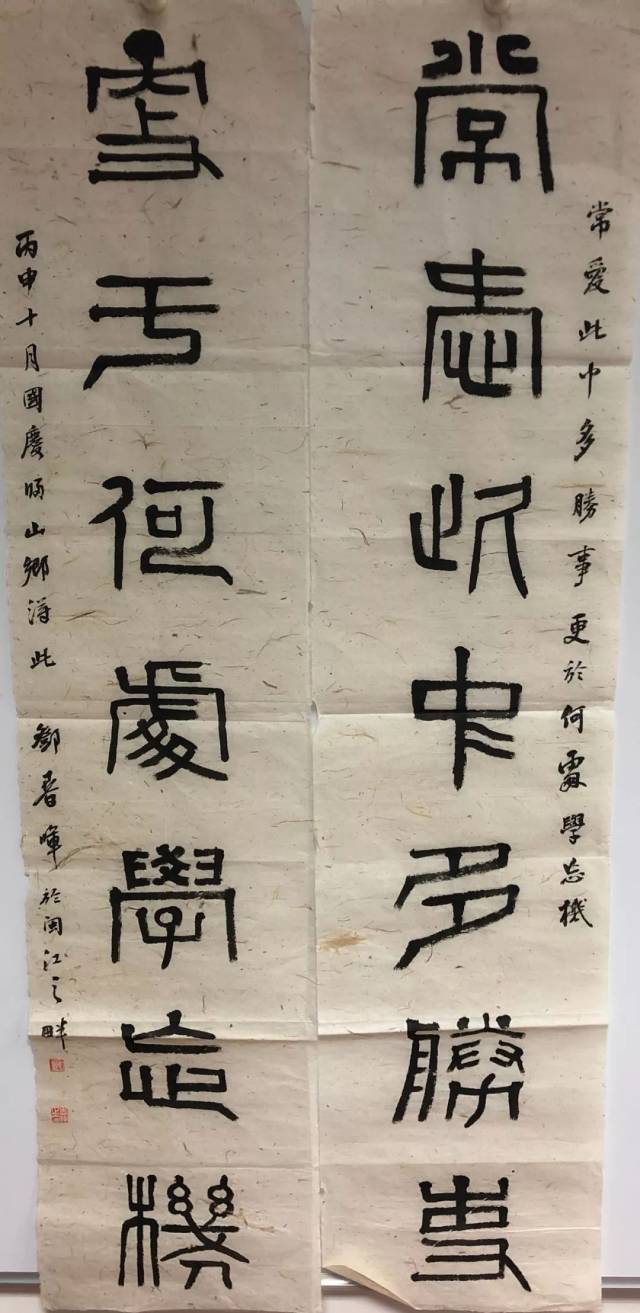 常愛此中多勝事更於何處學忘機
常愛此中多勝事
更于何處學忘機
丙申十月國慶歸山鄉得此 鄧春暉於閩江之畔